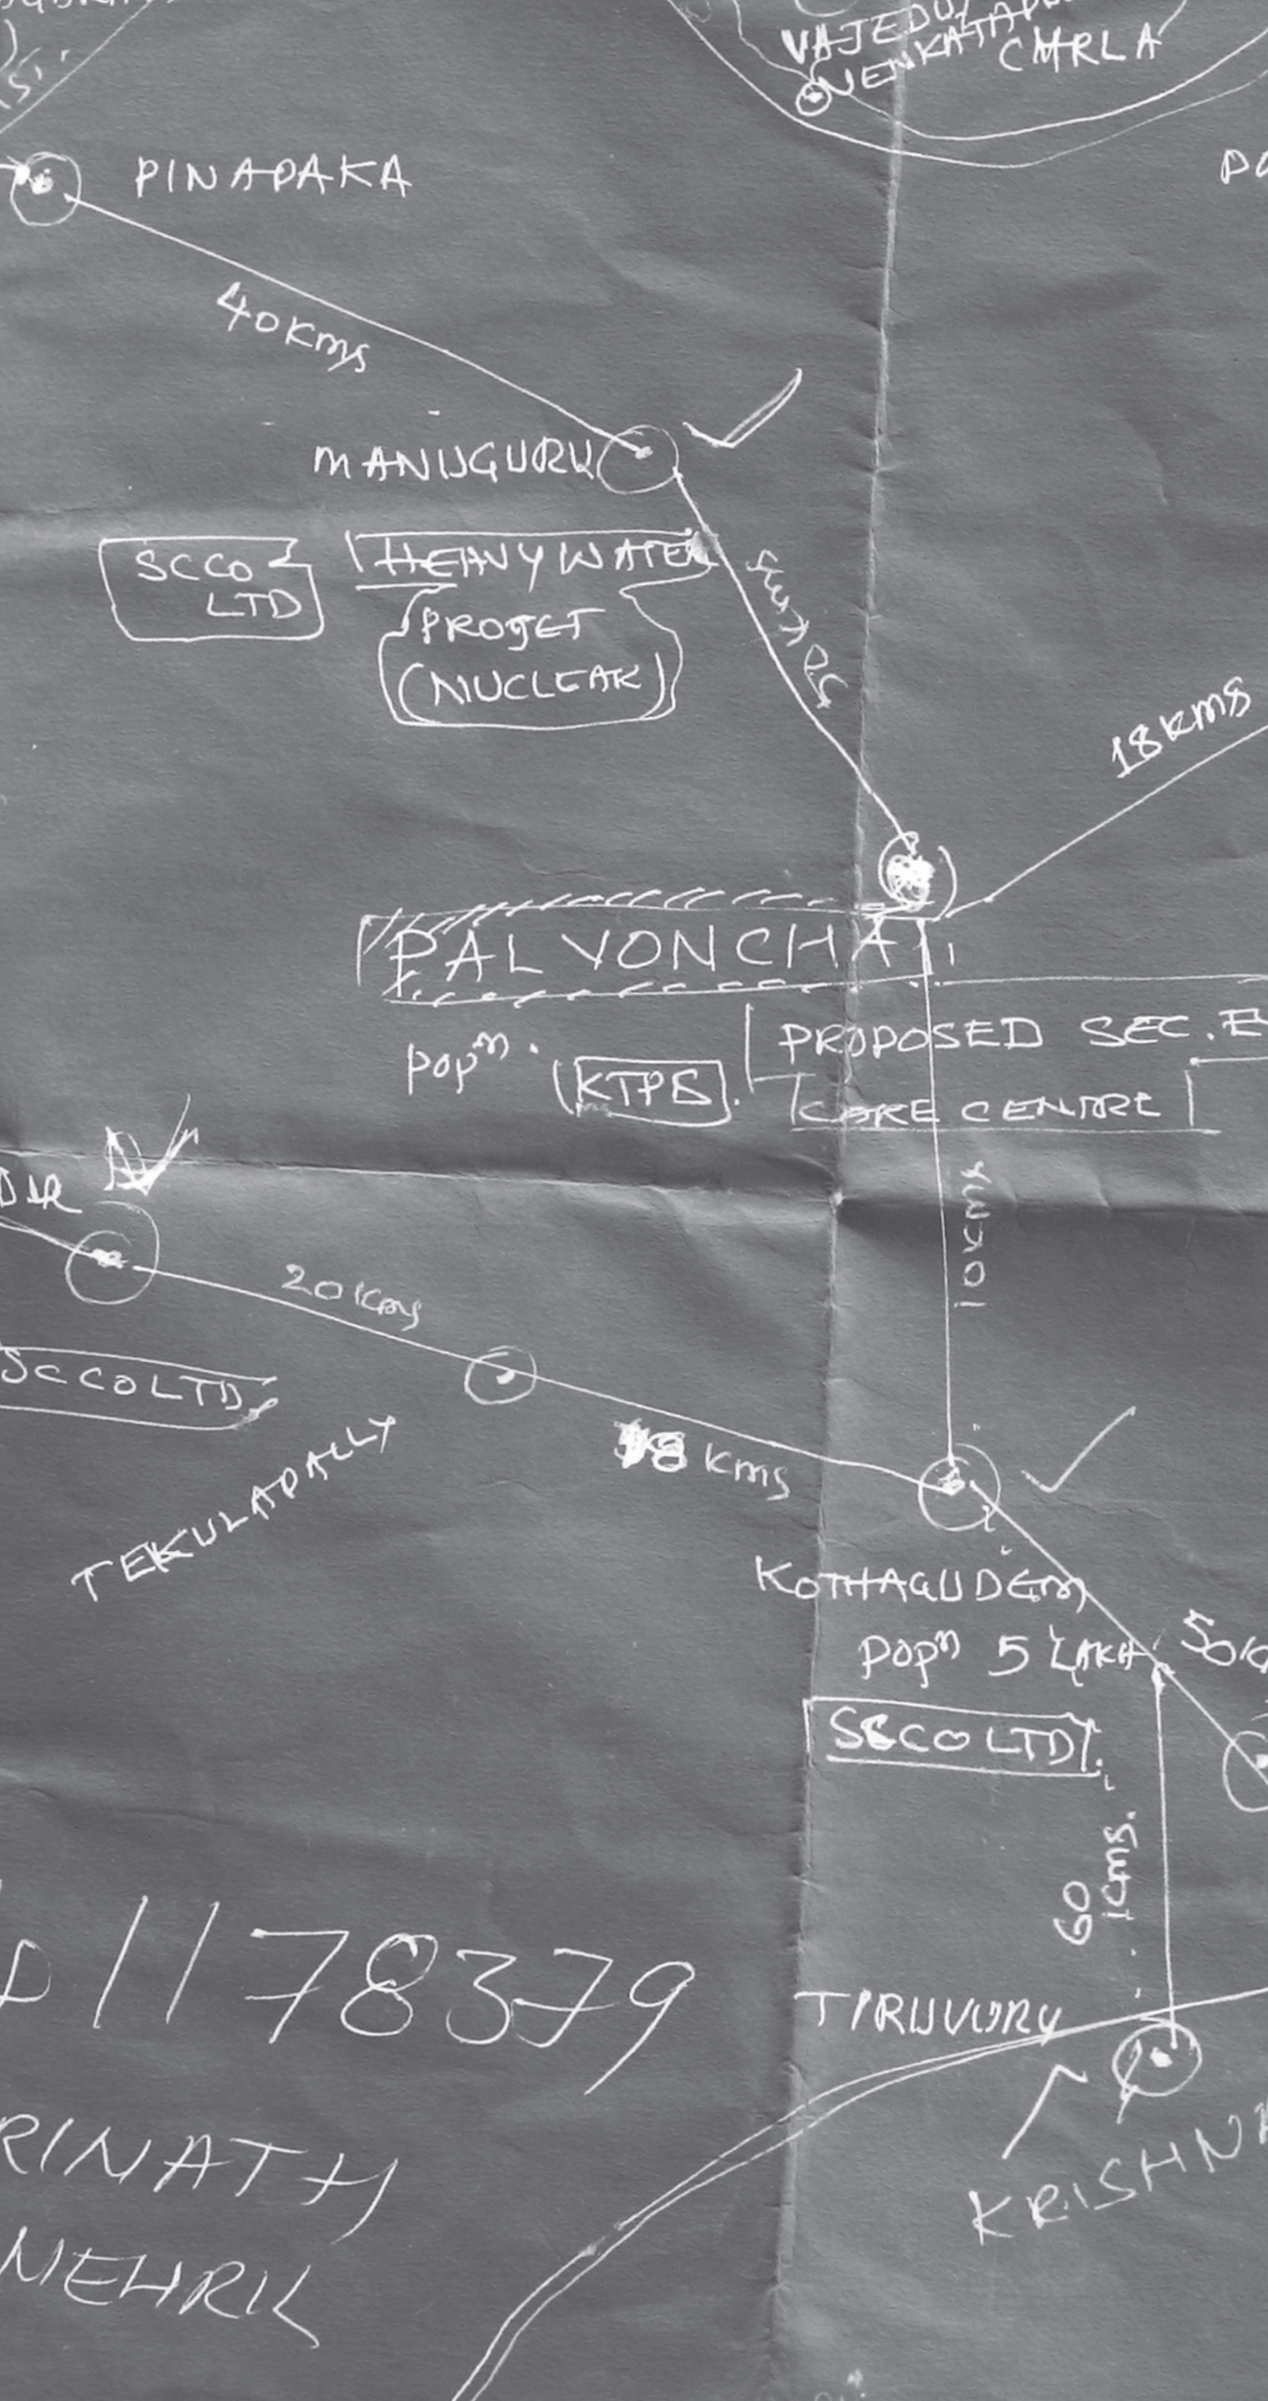 VAJEDU/
VENKATAPU
CMRLA
PINAPAKA
40 Kms
MANUGURU
SCCO
LTD
HEAVY WATER
PROJET
(NUCLEAR)
50 Kms
18 Kms
PALVONCHA
popⁿ.
KTPS
PROPOSED SEC. E
CARE CENTRE
10 Kms
20 Kms
SCCO LTD
18 Kms
TEKULAPALLY
KOTHAGUDEM
popⁿ 5 LAKH
SCCO LTD
60
Kms.
1178379
TIRUVURU
RINATH
KRISHNA
NEHRU